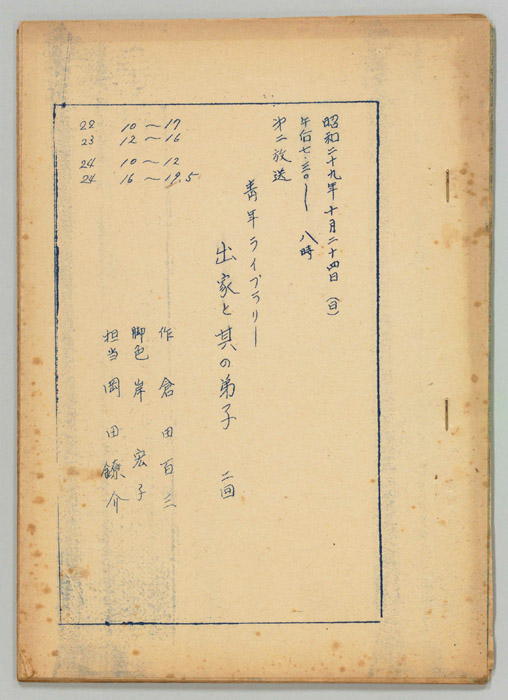 昭和二十九年十月二十四日（日）
午后七・三〇— 八時
第二放送
青年ライブラリー
出家と其の弟子　二回
作　倉田百三
脚色　岸　宏子
担当　岡田鐐介
22　10～17
23　12～16
24　10～12
24　16～19.5